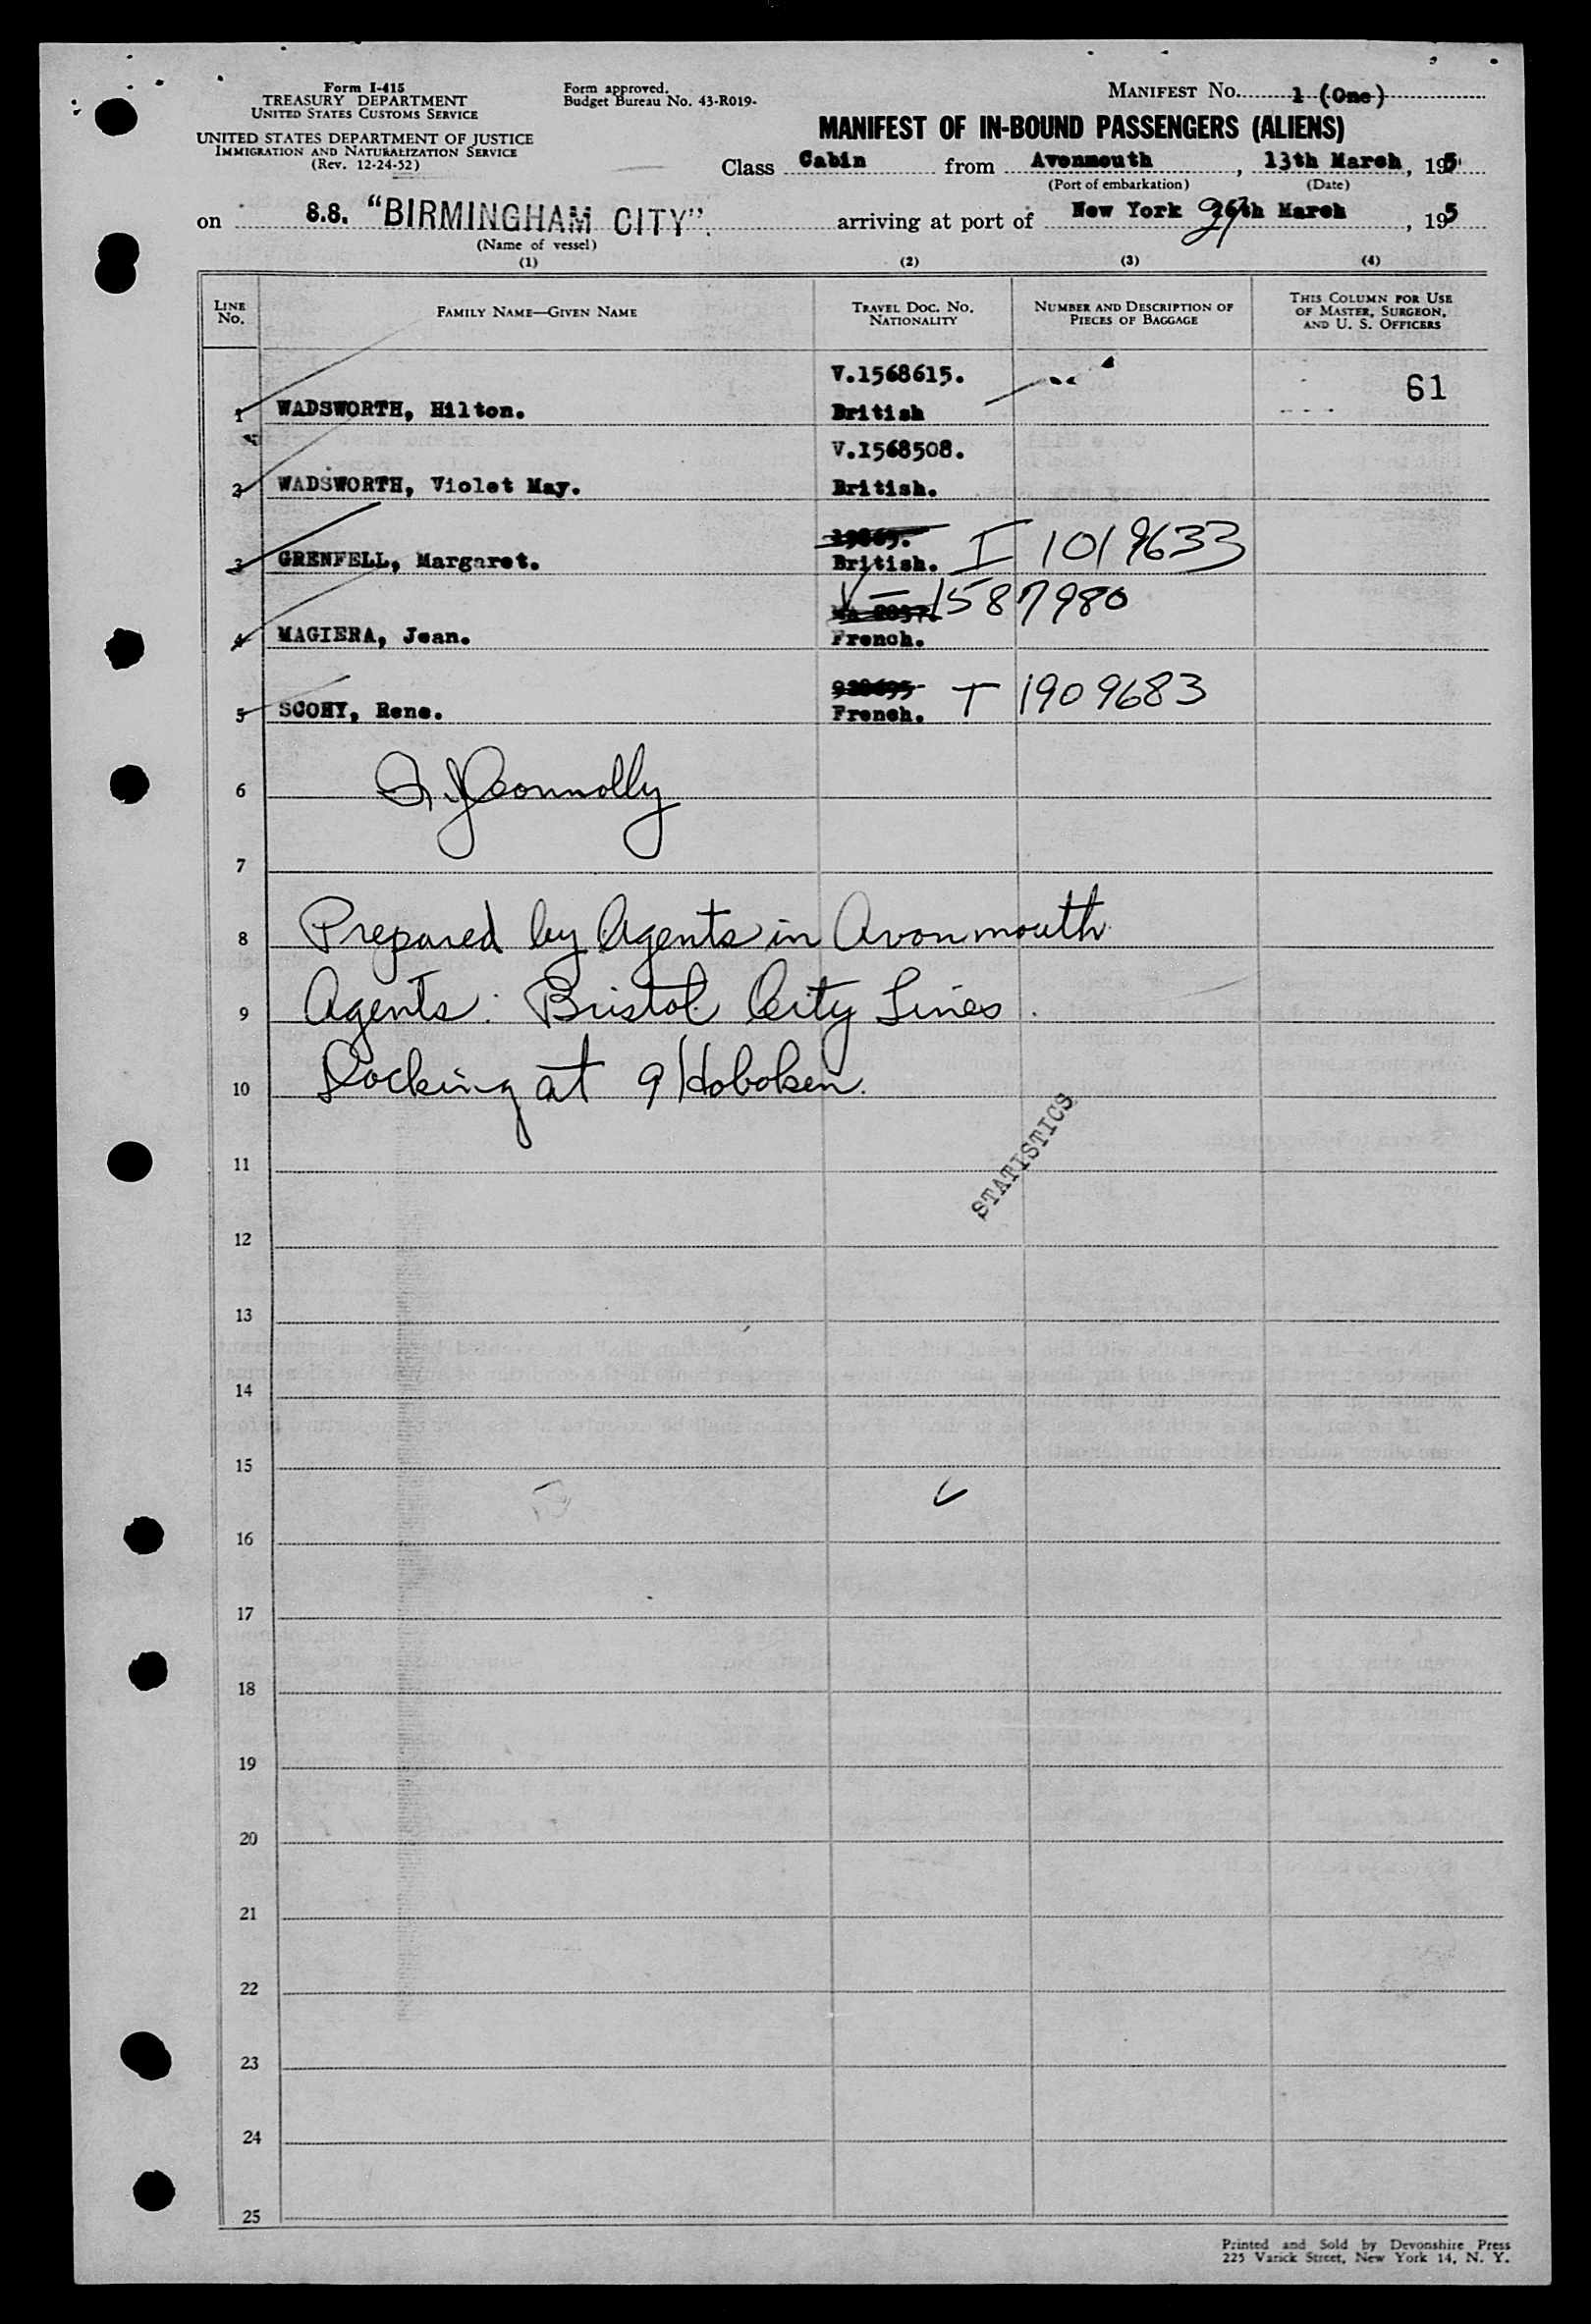 Form I-415
TREASURY DEPARTMENT
UNITED STATES CUSTOMS SERVICE
UNITED STATES DEPARTMENT OF JUSTICE
IMMIGRATION AND NATURALIZATION SERVICE
(Rev. 12-24-52)
Form approved.
Budget Bureau No. 43-R019-
MANIFEST No. 1 (One)
MANIFEST OF IN-BOUND PASSENGERS (ALIENS)
Class Cabin from Avonmouth, 13th March, 195
(Port of embarkation) (Date)
on S.S. "BIRMINGHAM CITY". arriving at port of New York 26th March, 195
(Name of vessel)
(1) (2) (3) (4)
LINE No. FAMILY NAME—GIVEN NAME TRAVEL DOC. NO. NATIONALITY NUMBER AND DESCRIPTION OF PIECES OF BAGGAGE THIS COLUMN FOR USE OF MASTER, SURGEON, AND U. S. OFFICERS
V.1568615. 61
1 WADSWORTH, Hilton. British
V.1568508.
2 WADSWORTH, Violet May. British.
I 1019633
3 GRENFELL, Margaret. British.
V-1587980
4 MAGIERA, Jean. French.
T 1909683
5 SCOHY, Rene. French.
6 Connolly
7
8 Prepared by Agents in Avonmouth
9 Agents: Bristol City Lines.
10 Docking at 9 Hoboken.
STATISTICS
11
12
13
14
15
16
17
18
19
20
21
22
23
24
25
Printed and Sold by Devonshire Press
225 Varick Street, New York 14, N. Y.